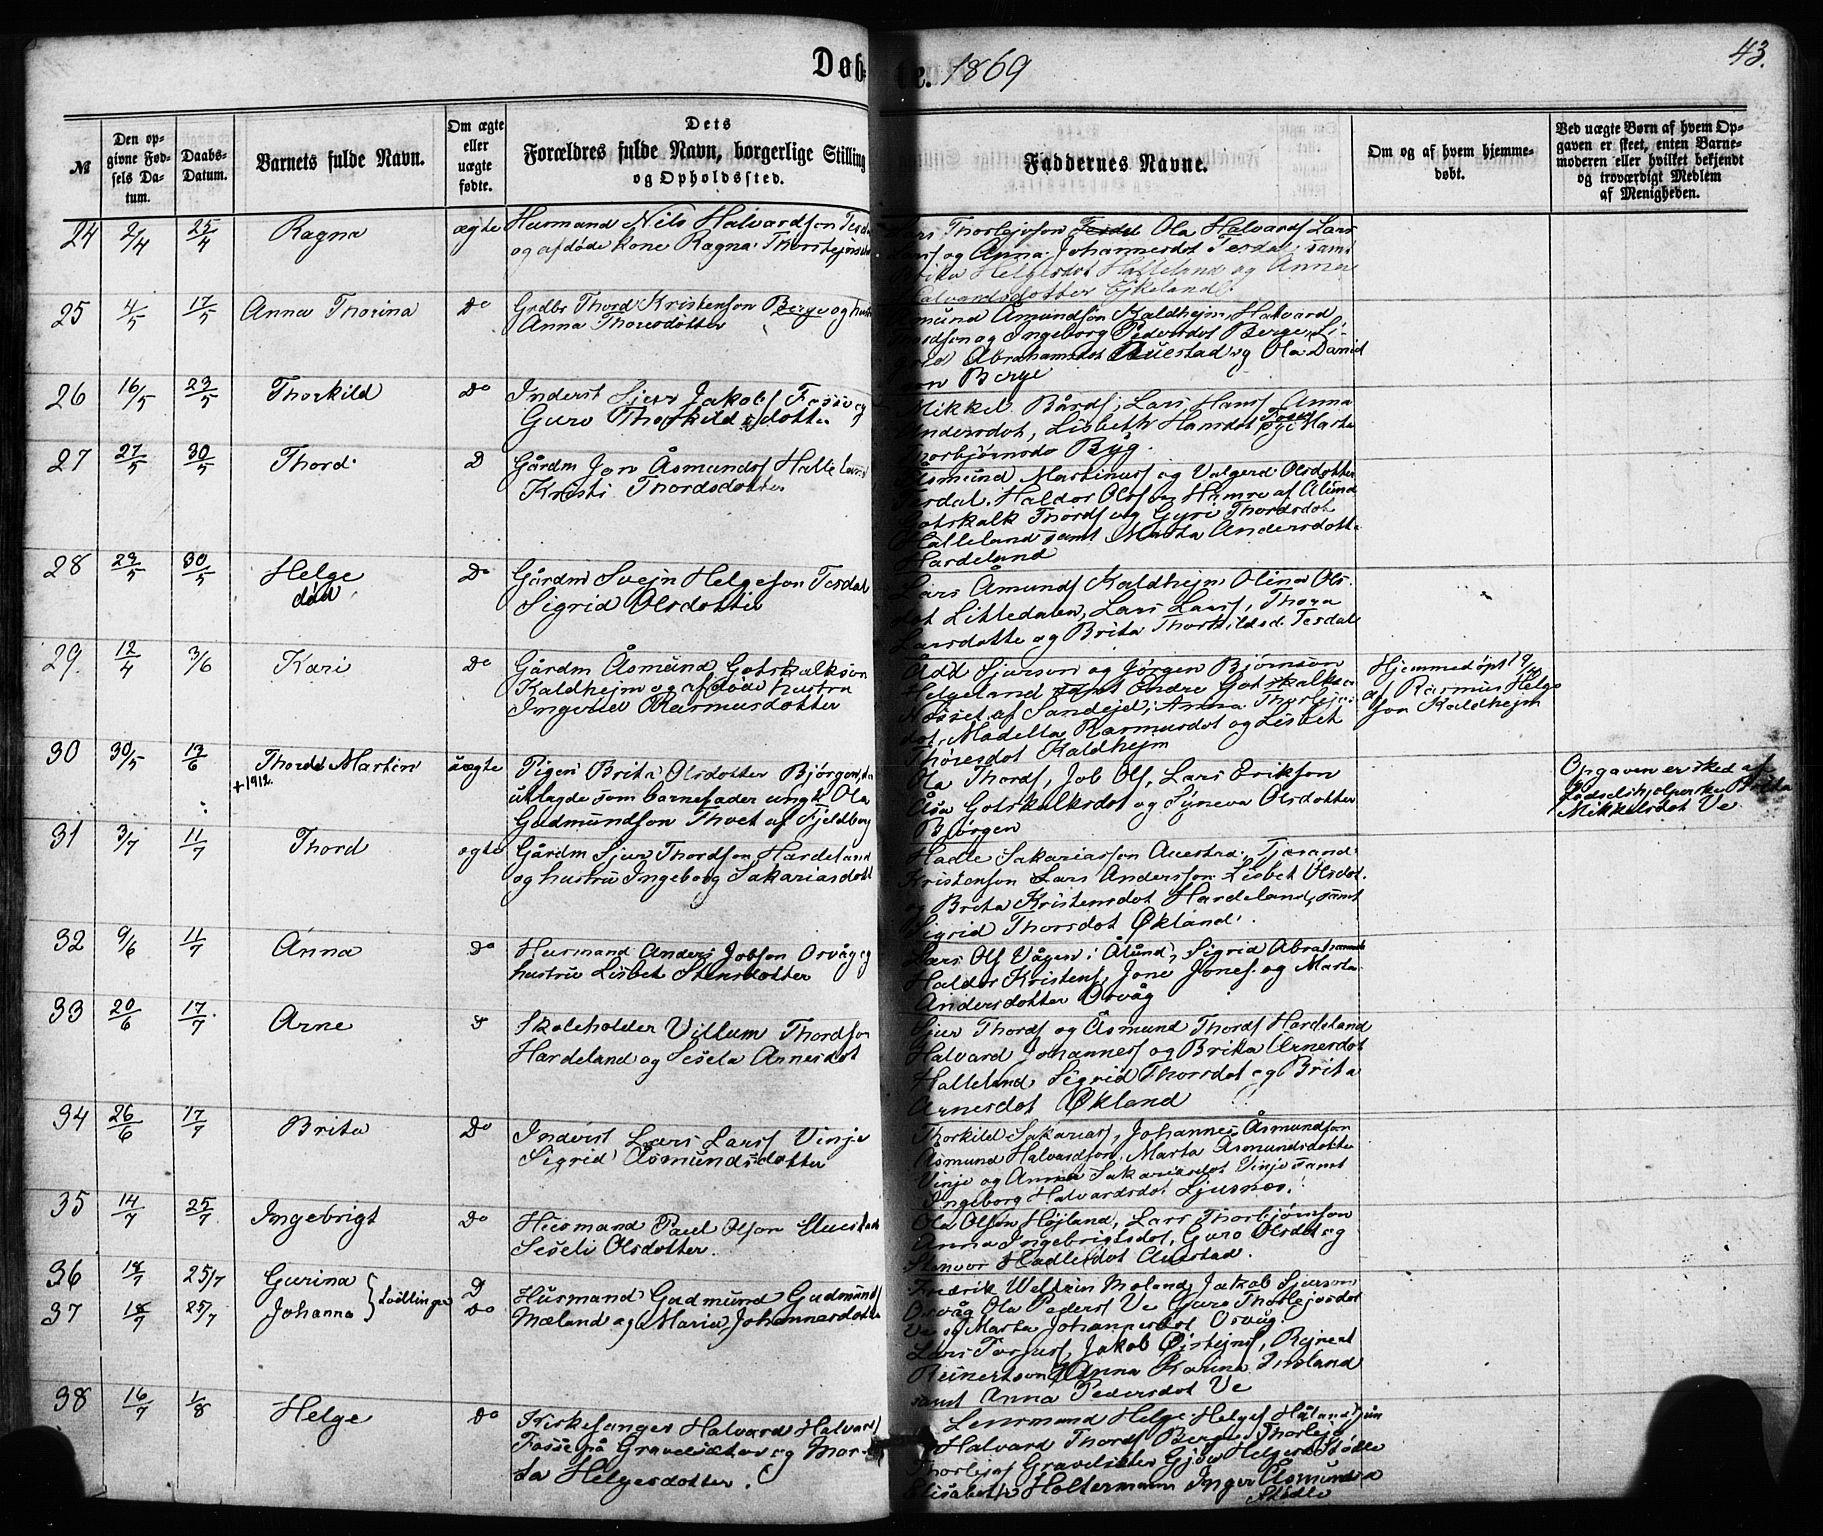 Døb-
te. 1869
43.
№
Den op-
givne Fød-
sels Da-
tum.
Daabs-
Datum.
Barnets fulde Navn.
Om ægte
eller
uægte
fødte.
Dets
Forældres fulde Navn, borgerlige Stilling
og Opholdssted.
Faddernes Navne.
Om og af hvem hjemme-
døbt.
Ved uægte Børn af hvem Op-
gaven er skeet, enten Barne-
moderen eller hvilket bekjendt
og troværdigt Medlem
af Menigheden.
24 2/4 25/4 Ragna ægte Husmand Nils Halvardson Tesdal
og afdøde kone Ragna Thorstejnsd
Thorlejvson Ola Halvards Lars
og Anna Johannesdot Tesdal, samt
Brita Helgesdot Halleland og Anna
Halvardsdotter Ejkeland
25 4/5 17/5 Anna Thorina Do Grdbr Thord Kristenson Berge og hustr
Anna Thoresdotter
Åmund Amundson Kaldhejm, Halvard
og Ingeborg Pedersdot Berge, Li-
Abrahamsdot Auestad og Ola David
son Berge
26 16/5 23/5 Thorkild Do Inderst Sjur Jakobs Fosse og
Guro Thorkildsdotter
Mikkel Bårds, Lars Hans, Anna
Andersdot, Lisbeth Hansdot Fosse og Marta
Thorbjørnsdo Byg.
27 27/5 30/5 Thord D Gårdm Jon Åsmunds Halleland
Kristi Thordsdotter
Åsmund Martinus og Valgerd Olsdotter
Tesdal, Haldor Ols Hamre af Ålund
Gotskalk Thords og Guri Thordsdot
Halleland samt Marta Andersdotte
Hardeland
28 23/5 30/5 Helge Do Gårdm Svejn Helgeson Tesdal
død Sigrid Olsdotter
Lars Åmunds Kaldhejm Olina Ols-
dot Litledalen, Lars Lars, Thora
Larsdotte og Brita Thorkildsd. Tesdal
29. 12/4 3/6 Kari Do Gårdm Åsmund Gotskalkson
Kaldhejm og afdøde hustru
Ingerid Rasmusdotter
Add Sjurson og Jørgen Bjørnson
Helgeland samt Endre Gotskalks
af Sandejd, Anna Thorlejvs
dot, Madella Rasmusdot og Lisbet
Thoresdot Kaldhejm
Hjemmedøpt 19/4
af Rasmus Helge
son Kaldhejm
30 30/5 13/6 Thord Martin uægte Pigen Brita Olsdotter Bjørgen, der
+1912. utlagde som barnefader ungk Ola
Gudmundson Thvet af Fjeldberg
Ola Thords, Job Ols, Lars Erikson
Åsa Gotskalksdot og Syneva Olsdotter
Bjørgen
Opgaven er sked af
Fødselshjælperske Brita
Mikkelsdot Ve
31 3/7 11/7 Thord egte Gårdm Sjur Thordson Hardeland
og hustru Ingeborg Sakariasdott
Hadle Sakariasson Auestad, Tjerand
Kristenson Lars Anderson Lisbet Olsdot.
og Brita Kristensdot Hardeland, samt
Sigrid Thorsdot Økland.
32 9/6 11/7 Anna Do Husmand Anders Jobson Osvåg og
hustru Lisbet Stensdotter
Lars Ols Vågen i Ålund, Sigrid Abrahamsd
Haldor Kristens, Jone Jones. og Marta
Andersdotter Osvåg
33 20/6 17/7 Arne D Skoleholder Villum Thordson
Hardeland og Sesela Arnesdot
Sjur Thords og Åsmund Thords Hardeland
Halvard Johannes og Brita Arnesdot
Halleland Sigrid Thorsdot og Brita
Arnesdot Økland
34 26/6 17/7 Brita Do Inderst Lars Lars Vinje
Sigrid Åsmundsdotter
Thorkild Sakarias, Johannes Åsmundson
Åsmund Halvardson, Marta Åsmundsdotter
Vinje og Anna Sakariasdot Vinje samt
Ingeborg Halvardsdot Ljusnes.
35 14/7 25/7 Ingebrigt Do Husmand Paul Olson Auestad
Seseli Olsdotter.
Ola Olson Højland, Lars Thorbjørnson
Anna Ingebrigtsdot, Guro Olsdot og
Stenvor Hadlesdot Auestad.
36 18/7 25/7 Gurina } Tvillinger D Husmand Gudmund Gudmunds
37 18/7 25/7 Johanna do Mæland og Maria Johannesdotter
Fredrik Mæland, Jakob Sjurson
Osvåg Ola Peders Ve Guro Thorlejvsdot
Ve og Marta Johannesdot Osvåg.
Lars Torjus, Jakob Østejns, Rejnert
Reinertson Anna Karina
samt Anna Pedersdot Ve
38 16/7 1/8 Helge Do Kirkesanger Halvard Halvards
Fosse på Gravelsæter og Mar-
ta Helgesdotter.
Lensmand Helge Helges Håland
Halvard Thords Berge Thorlejv
Thorlejvs Gravelsæter Helgesd Stødle
Elisabeth Holtermann Inger Åsmundsd
Stødle